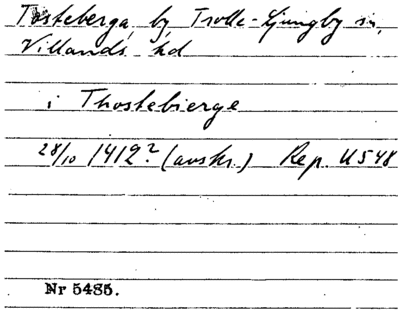 Tosteberga by Trolle-Ljungby sn,
Villands hd
i Thostebierge
28/10 1412? (avskr.) Rep. II 548
Nr 5485.